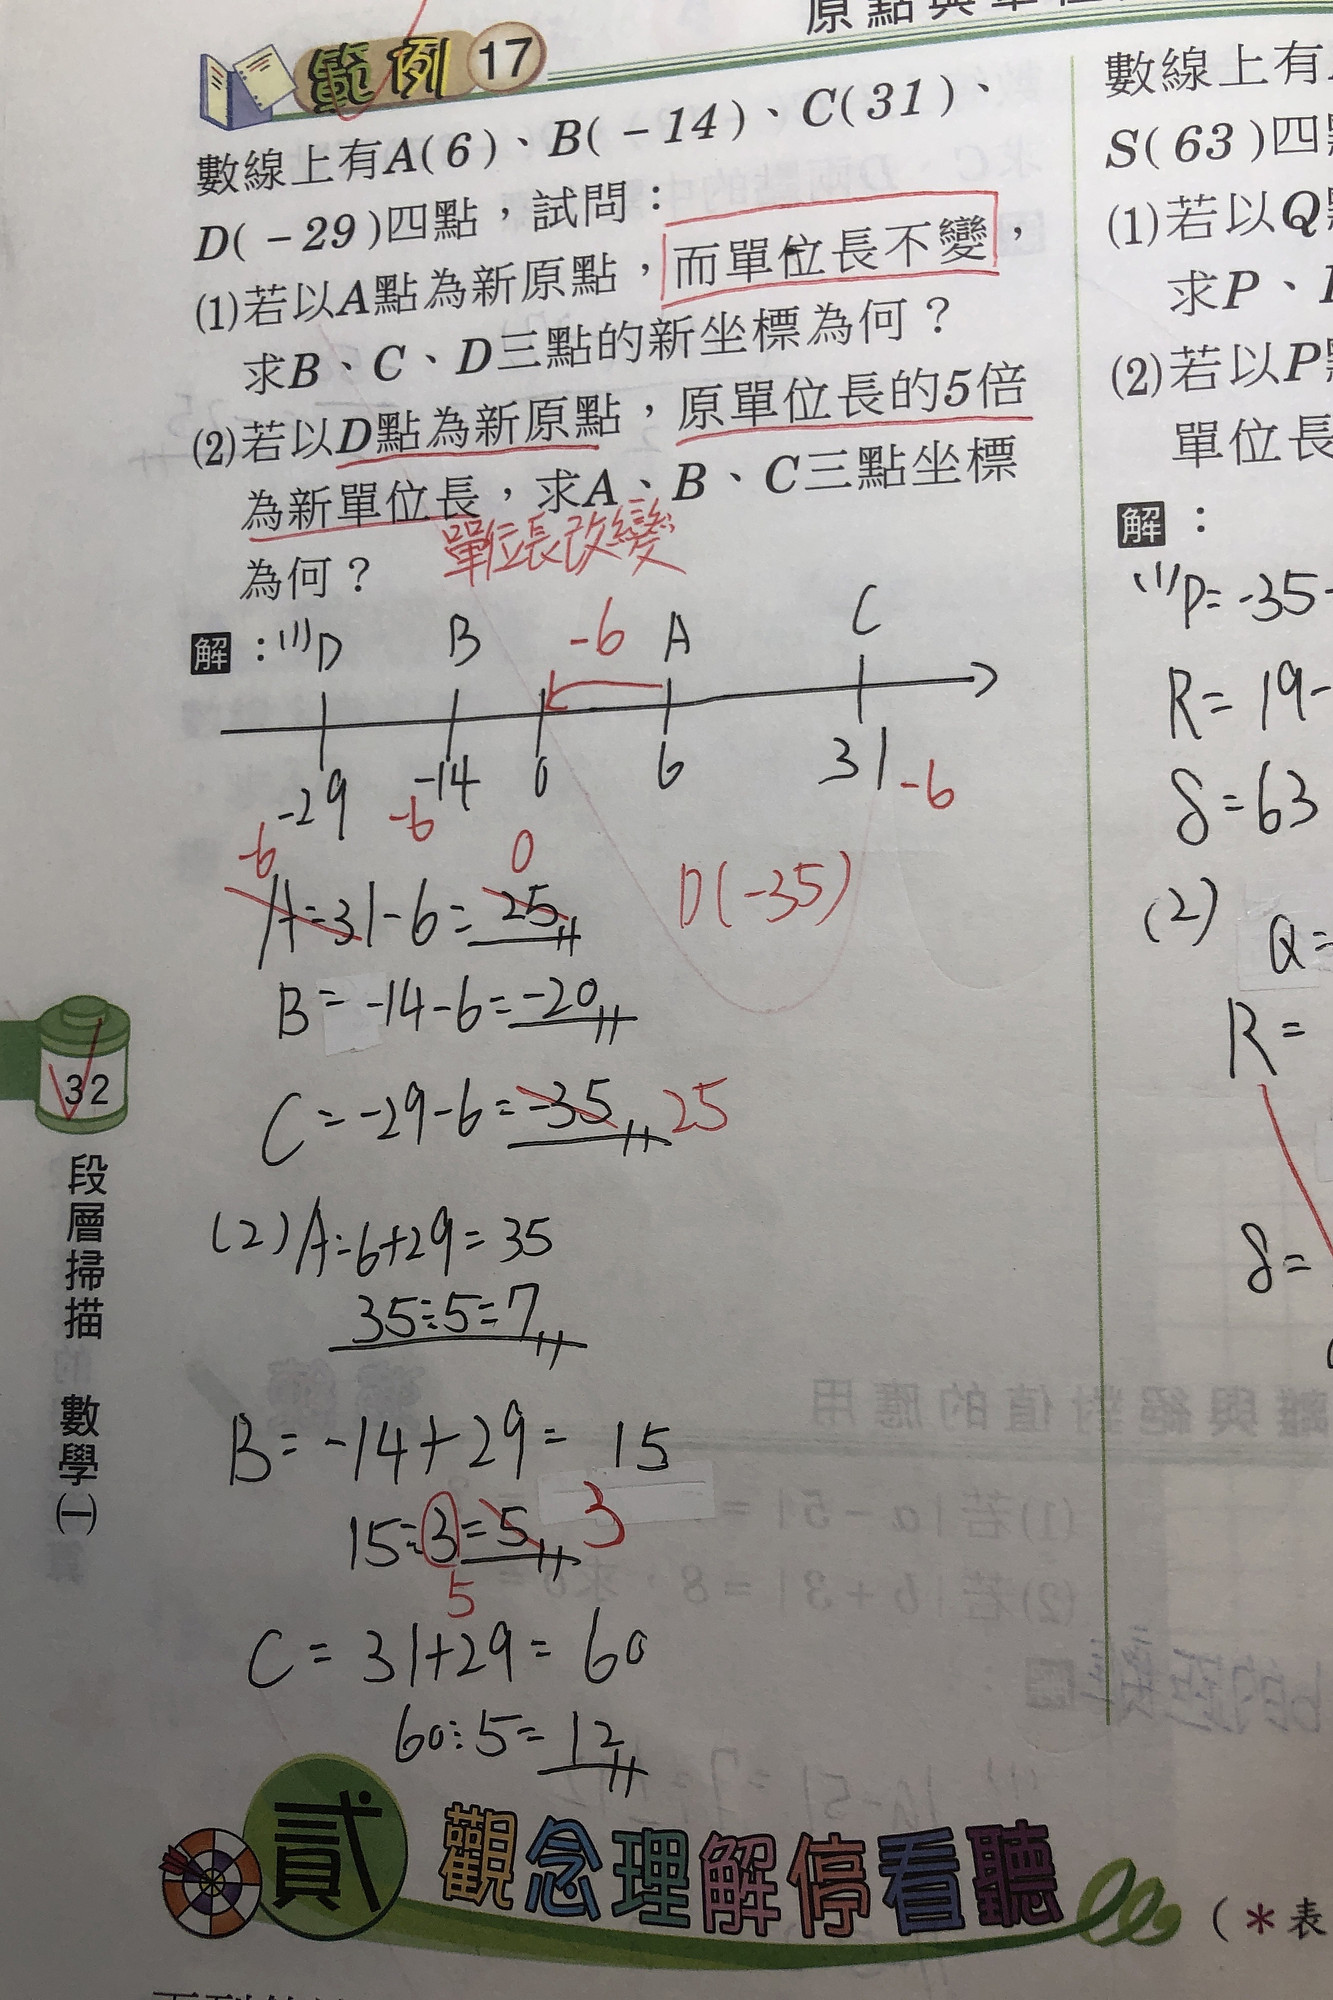 範例 17
數線上有A(6)、B(-14)、C(31)、
D(-29)四點，試問：
(1)若以A點為新原點，而單位長不變，
求B、C、D三點的新坐標為何？
(2)若以D點為新原點，原單位長的5倍
為新單位長，求A、B、C三點坐標
為何？
單位長改變
解：(1) D B -6 A C
-29 -14 0 6 31
-6 -6 -6
0
A=31-6=25 D(-35)
B=-14-6=-20
C=-29-6=-35 25
(2) A=6+29=35
35÷5=7
B=-14+29=15
15÷3=5 3
5
C=31+29=60
60÷5=12
貳 觀念理解停看聽
(＊表
32
段層掃描 數學(一)
數線上有
S(63)四
(1)若以Q
求P、
(2)若以P
單位長
解：
(1) P=-35
R=19-
S=63
(2) Q=
R=
S=